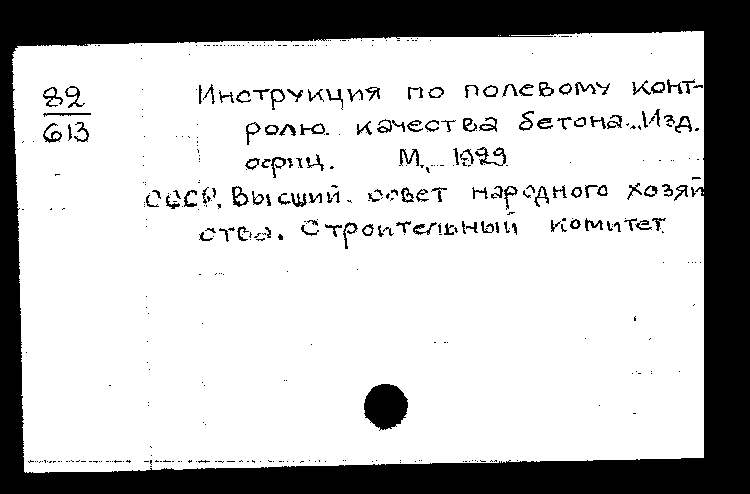 82
613
Инструкция по полевому конт-
ролю качества бетона. Изд.
офиц. М., 1929
СССР. Высший совет народного хозяй
ства. Строительный комитет